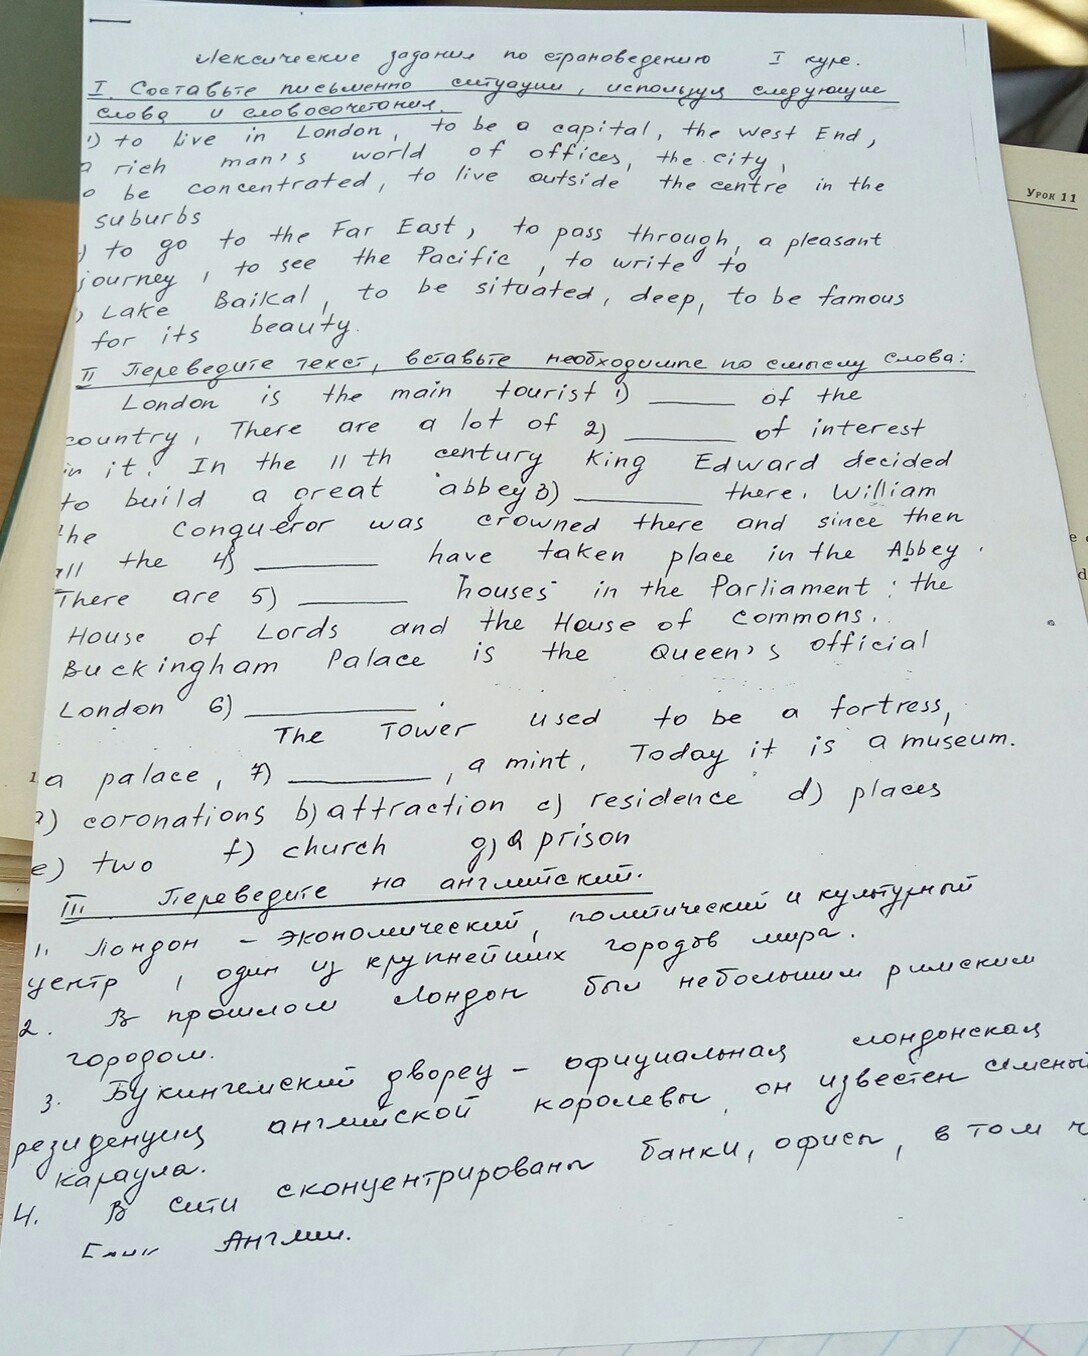 Лексические задания по страноведению I курс.
I. Составьте письменно ситуации, используя следующие
слова и словосочетания.
1) to live in London, to be a capital, the West End,
a rich man's world of offices, the city,
o be concentrated, to live outside the centre in the
suburbs
) to go to the Far East, to pass through, a pleasant
journey, to see the Pacific, to write to
) Lake Baikal, to be situated, deep, to be famous
for its beauty.
II Переведите текст, вставьте необходимые по смыслу слова:
London is the main tourist 1) ______ of the
country, There are a lot of 2) ______ of interest
in it. In the 11 th century King Edward decided
to build a great abbey 3) ______ there. William
the Conqueror was crowned there and since then
all the 4) ______ have taken place in the Abbey.
There are 5) ______ houses in the Parliament: the
House of Lords and the House of commons.
Buckingham Palace is the Queen's official
London 6) ______.
The Tower used to be a fortress,
a palace, 7) ______, a mint, Today it is a museum.
a) coronations b) attraction c) residence d) places
e) two f) church g) a prison
III Переведите на английский.
1. Лондон - экономический, политический и культурный
центр, один из крупнейших городов мира.
2. В прошлом Лондон был небольшим римским
городом.
3. Букингемский дворец - официальная лондонская
резиденция английской королевы, он известен сменой
караула.
4. В Сити сконцентрированы банки, офисы, в том ч
Банк Англии.
Урок 11